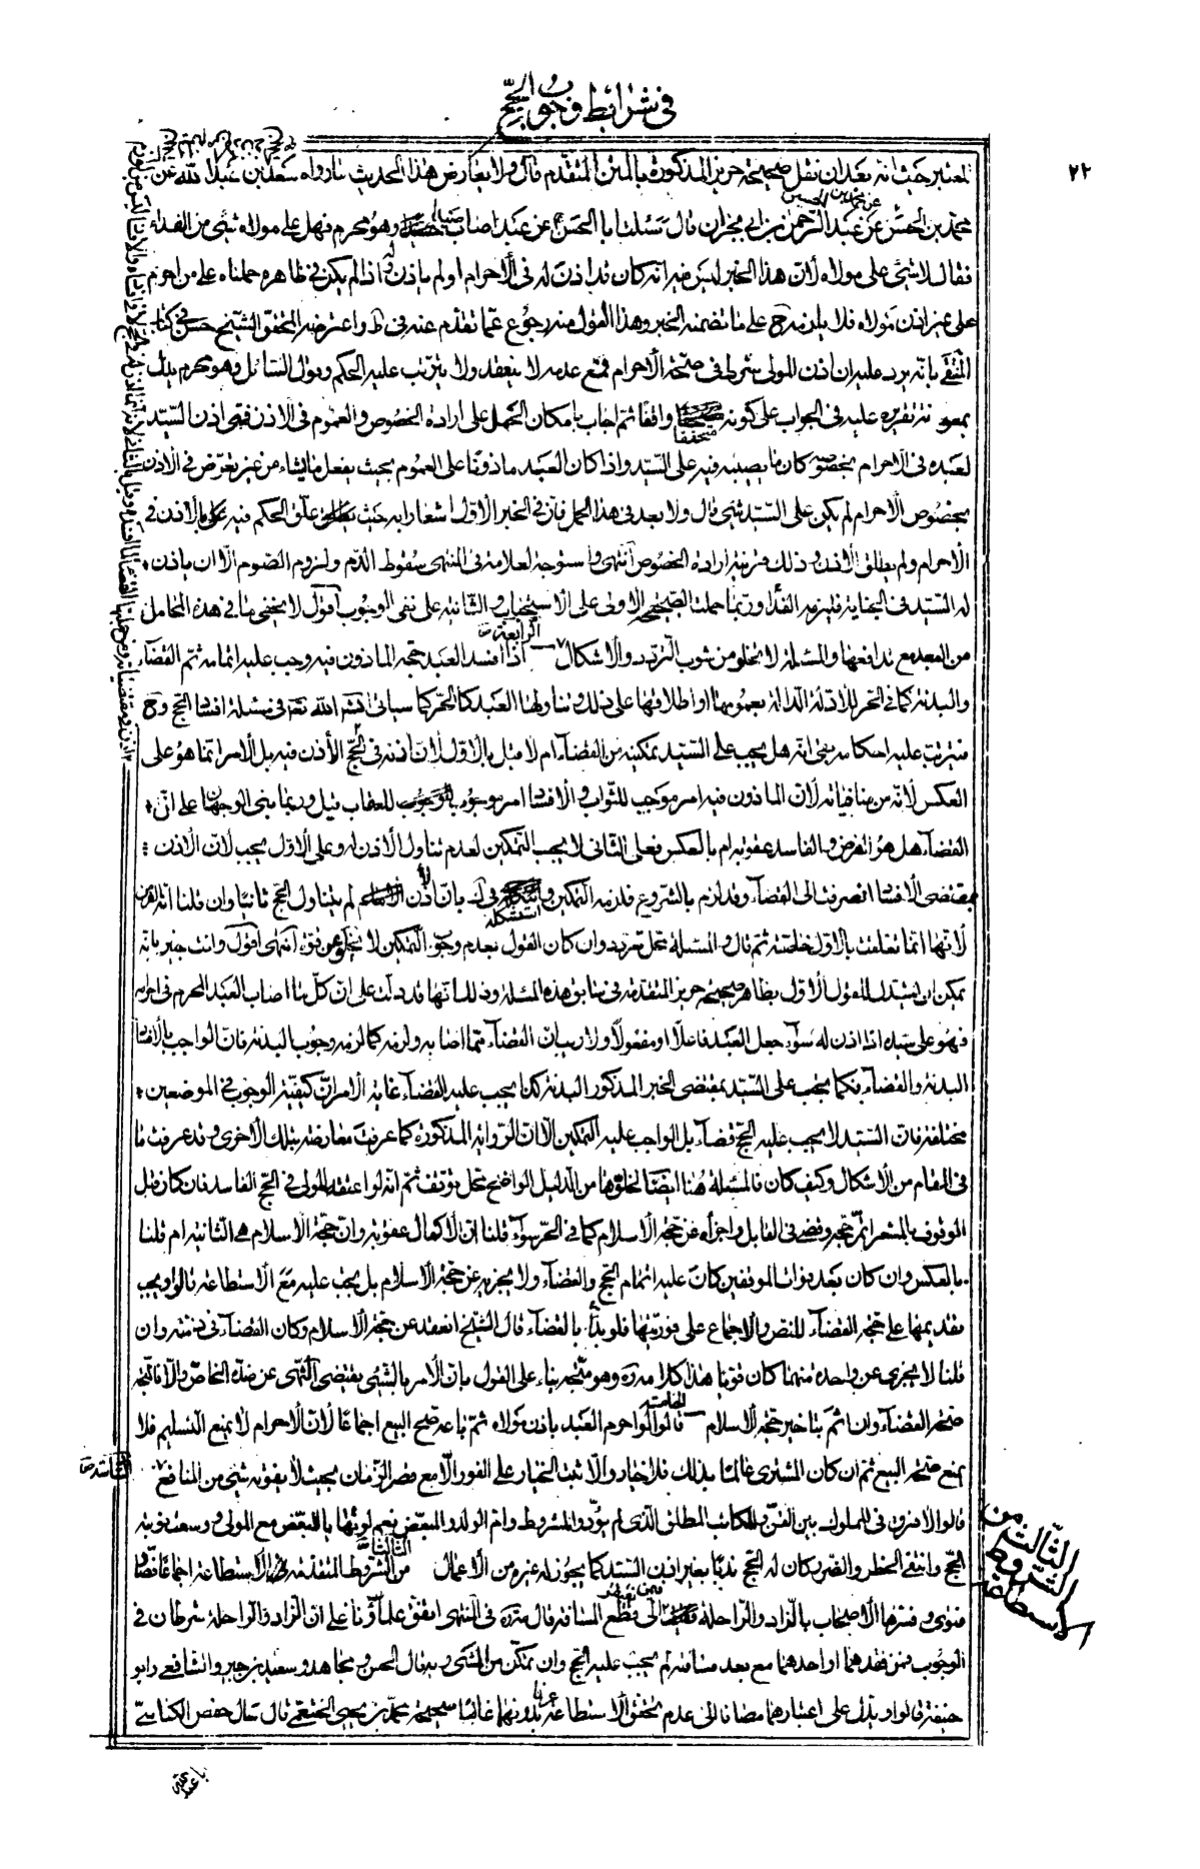 في شرائط وجوب الحج
٢٢
المعتبر حيث انه بعد ان نقل صحيحة حريز المذكورة بالمتن المتقدم قال ولا يعارض هذا الحديث ما رواه سعد بن عبد الله عن
محمد بن الحسن عن محمد بن الحسين عن عبد الرحمن بن ابي نجران قال سئلت ابا الحسن ع عن عبد اصاب صيدا وهو محرم فهل على مولاه شئ من الفداء
فقال لا شئ على مولاه لان هذا الخبر ليس فيه انه كان قد اذن له في الاحرام او لم ياذن له واذا لم يكن في ظاهره حملناه على من احرم
على غير اذن مولاه فلا يلزمه ح على ما تضمنه الخبر وهذا القول منه رجوع عما تقدم عنه في ط واعترضه المحقق الشيخ حسن في كتاب
المنتقى بانه يرد عليه ان اذن المولى شرط في صحة الاحرام فمع عدمه لا ينعقد ولا يترتب عليه الحكم وقول السائل وهو محرم يدل
بمعونة تقريره عليه في الجواب على كونه متحققا واقعا ثم اجاب بامكان الحمل على ارادة الخصوص والعموم في الاذن فمتى اذن السيد
لعبده في الاحرام بخصوصه كان ما يصيبه فيه على السيد واذا كان العبد ماذونا على العموم بحيث يفعل ما يشاء من غير تعرض في الاذن
بخصوص الاحرام لم يكن على السيد شئ قال ولا بعد في هذا الحمل فان في الخبر الاول اشعارا به حيث علق الحكم فيه بالاذن في
الاحرام ولم يطلق الاذن وذلك قرينة ارادة الخصوص انتهى واستوجه العلامة في المنتهى سقوط الدم ولزوم الصوم الا ان ياذن
له السيد في الجناية فيلزمه الفداء وربما حملت الصحيحة الاولى على الاستحباب والثانية على نفي الوجوب اقول لا يخفى ما في هذه المحامل
من البعد مع تدافعها والمسئلة لا تخلو من شوب التردد والاشكال الرابعة اذا افسد العبد حجه الماذون فيه وجب عليه اتمامه ثم القضاء
والبدنة كما في الحر للادلة الدالة بعمومها او اطلاقها على ذلك وتناولها العبد كالحر كما سياتي انشاء الله تعالى في مسئلة افساد الحج وح
فيترتب عليه احكامه بقي انه هل يجب على السيد تمكينه من القضاء ام لا قيل بالاول لان اذنه في الحج الاذن فيه بل الامر انما هو على
العكس لانه من منافياته لان الماذون فيه امر موجب للثواب والافساد امر موجب للعقاب قيل وربما بني الوجهان على ان
القضاء هل هو الفرض والفاسد عقوبة ام بالعكس فعلى الثاني لا يجب التمكين لعدم تناول الاذن له وعلى الاول يجب لان الاذن
بمقتضى الافساد انصرفت الى القضاء وقد لزم بالشروع فلزمه التمكين واستشكله في ك بان الاذن لم يتناول الحج ثانيا وان قلنا انه الفرض
لانها انما تعلقت بالاول خاصة ثم قال والمسئلة محل تردد وان كان القول بعدم وجوب التمكين لا يخلو من قوة انتهى اقول وانت خبير بانه
يمكن ان يستدل للقول الاول بظاهر صحيحة حريز المتقدمة في سابق هذه المسئلة وذلك انها قد دلت على ان كل ما اصاب العبد المحرم في احرامه
فهو على سيده اذا اذن له سواء جعل العبد فاعلا او مفعولا ولا ريب ان القضاء مما اصابه ولزمه كما لزمه وجوب البدنة فان الواجب بالافساد
البدنة والقضاء فكما يجب على السيد بمقتضى الخبر المذكور البدنة كذا يجب عليه القضاء غاية الامر ان كيفية الوجوب في الموضعين
مختلفة فان السيد لا يجب عليه الحج قضاء بل الواجب عليه التمكين الا ان الرواية المذكورة كما عرفت معارضة بتلك الاخرى وقد عرفت ما
في المقام من الاشكال وكيف كان فالمسئلة هنا ايضا لخلوها من الدليل الواضح محل توقف ثم انه لو اعتقه المولى في الحج الفاسد فان كان قبل
الوقوف بالمشعر اتم حجه وقضى في القابل واجزاه عن حجة الاسلام كما في الحر سواء قلنا ان الاكمال عقوبة وان حجة الاسلام هي الثانية ام قلنا
بالعكس وان كان بعد فوات الموقفين كان عليه اتمام الحج والقضاء ولا يجزيه عن حجة الاسلام بل يجب عليه مع الاستطاعة قالوا ويجب
تقديمها على حجة القضاء للنص والاجماع على فوريتها فلو بدأ بالقضاء قال الشيخ انعقد عن حجة الاسلام وكان القضاء في ذمته وان
قلنا لا يجزي عن واحدة منهما كان قويا هذا كلامه ره وهو متجه بناء على القول بان الامر بالشئ يقتضي النهي عن ضده الخاص والا فالمتجه
صحة القضاء وان اثم بتاخير حجة الاسلام الخامسة قالوا لو احرم العبد باذن مولاه ثم باعه صح البيع اجماعا لان الاحرام لا يمنع التسليم فلا
يمنع صحة البيع ثم ان كان المشتري عالما بذلك فلا خيار والا ثبت الخيار على الفور الا مع قصر الزمان بحيث لا يفوته شئ من المنافع
السادسة
قالوا لا فرق في المملوك بين القن والمكاتب المطلق الذي لم يؤد والمشروط وام الولد والمبعض نعم لو تهايا المبعض مع المولى ووسعت نوبته
الحج وانتفى الخطر والضرر كان له الحج ندبا بغير اذن السيد كما يجوز له غيره من الاعمال الثالث من الشروط المتقدمة الاستطاعة اجماعا نصا و
فتوى وفسرها الاصحاب بالزاد والراحلة فيمن يفتقر الى قطع المسافة قال ره في المنتهى اتفق علماؤنا على ان الزاد والراحلة شرطان في
الوجوب فمن فقدهما او احدهما مع بعد مسافته لم يجب عليه الحج وان تمكن من المشي وبه قال الحسن ومجاهد وسعيد بن جبير والشافعي وابو
حنيفة قالوا ويدل على اعتبارهما مضافا الى عدم تحقق الاستطاعة عرفا بدونهما غالبا صحيحة محمد بن يحيى الخثعمي قال سال حفص الكناسي
الثالث من
الشروط
الاستطاعة